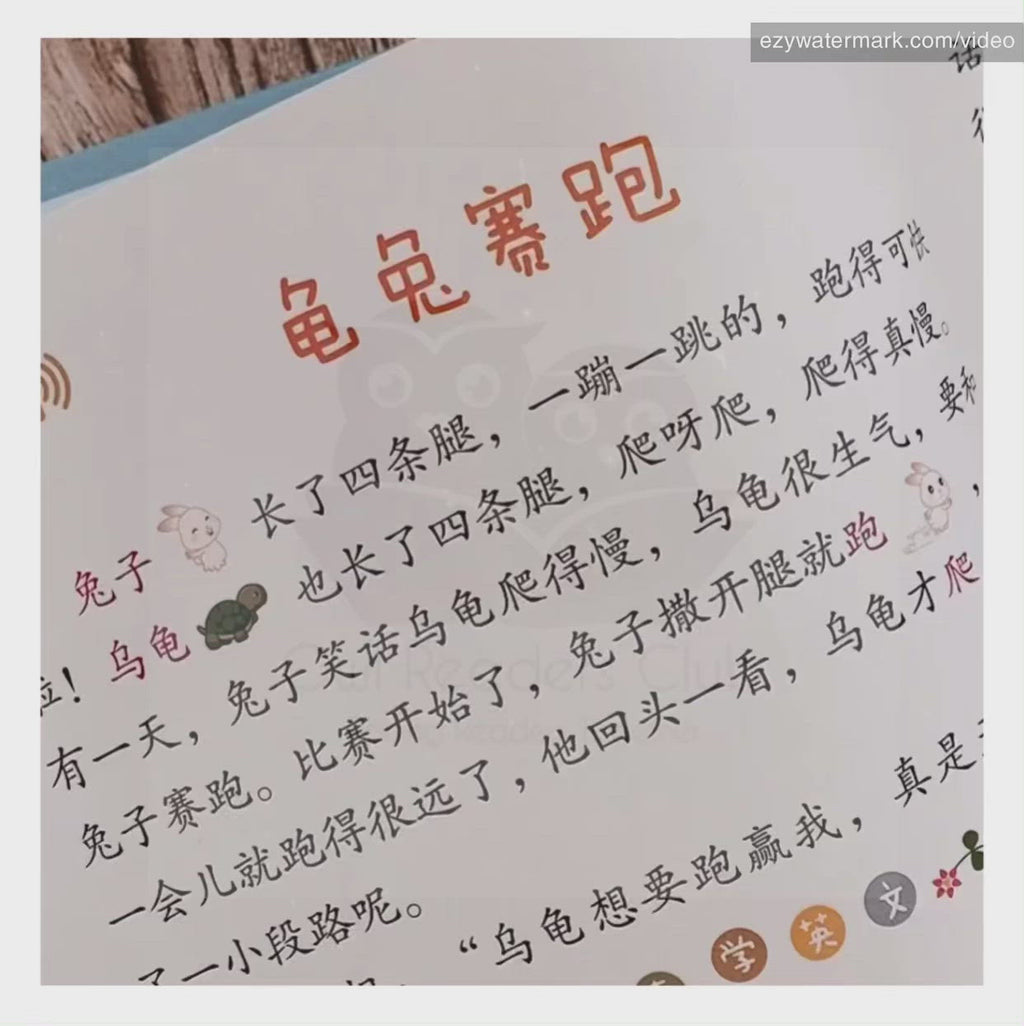 ezywatermark.com/video
话
龟兔赛跑
兔子 长了四条腿，一蹦一跳的，跑得可快
啦！乌龟 也长了四条腿，爬呀爬，爬得真慢。
有一天，兔子笑话乌龟爬得慢，乌龟很生气，要和
兔子赛跑。比赛开始了，兔子撒开腿就跑 ，
一会儿就跑得很远了，他回头一看，乌龟才爬
了一小段路呢。
“乌龟想要跑赢我，真是
学英文
Owl Readers Club